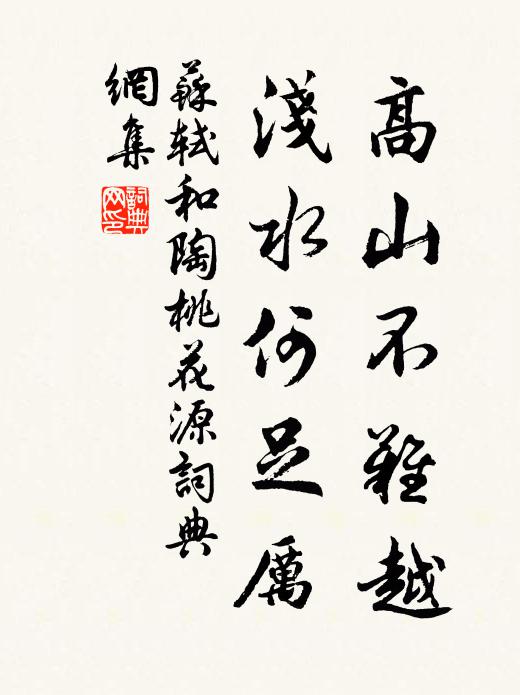 高山不難越
淺水何足厲
蘇軾和陶桃花源詞典
網集
詞典網印